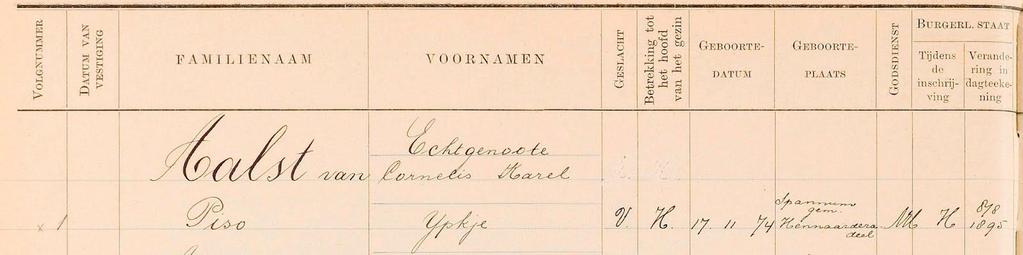 VOLGNUMMER
DATUM VAN
VESTIGING
FAMILIENAAM
VOORNAMEN
GESLACHT
Betrekking tot
het hoofd
van het gezin
GEBOORTE-
DATUM
GEBOORTE-
PLAATS
GODSDIENST
BURGERL. STAAT
Tijdens
de
inschrij-
ving
Verande-
ring in
dagteeke-
ning
Echtgenoote
Aalst van Cornelis Karel
x 1 Piso Ypkje V. H. 17 11 74
Spannum
gem.
Hennaardera
deel
NH H
8/8
1895